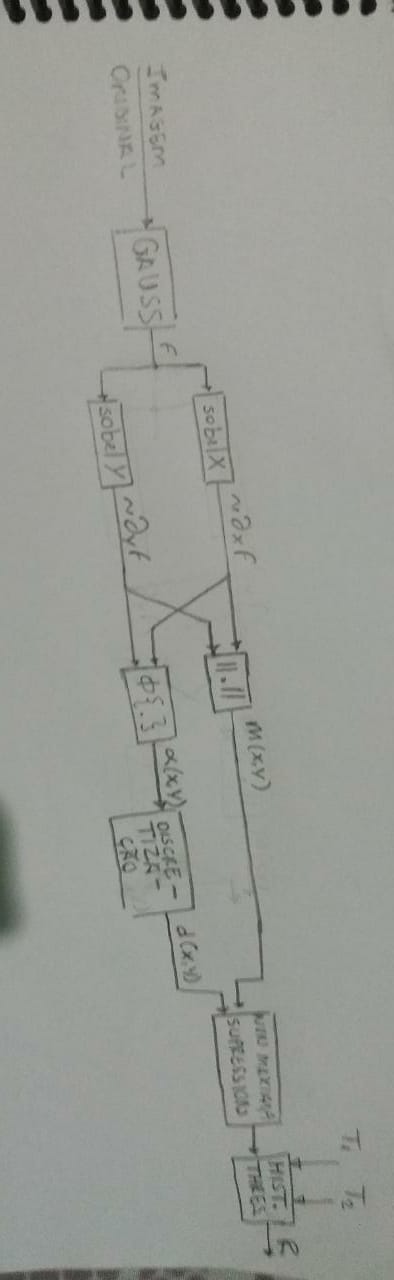 IMAGEM
ORIGINAL
GAUSS
f
sobel X
sobel Y
~∂xf
~∂yf
||.||
φ{.}
M(x,y)
α(x,y)
DISCRE-
TIZA-
ÇÃO
d(x,y)
NON MAXIMA
SUPRESSION
T1
T2
HIST.
THRES
R